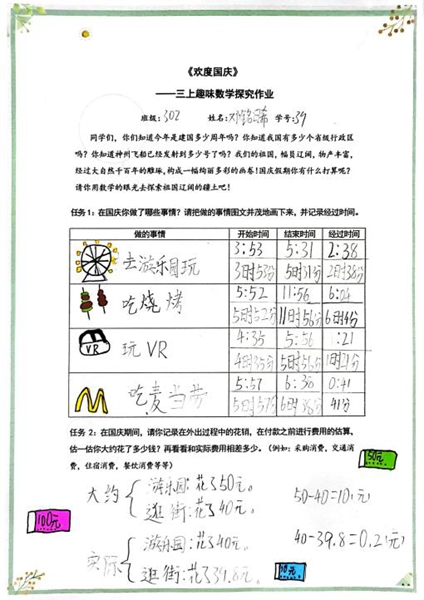 《欢度国庆》
——三上趣味数学探究作业
班级:302 姓名: 学号:39
同学们,你们知道今年是建国多少周年吗?你知道我国有多少个省级行政区
吗?你知道神州飞船已经发射到多少号了吗?我们的祖国,幅员辽阔,物产丰富,
经过大自然千百年的雕琢,构成一幅绚丽多彩的画卷!国庆假期你有什么打算呢?
请你用数学的眼光去探索祖国辽阔的疆土吧!
任务1:在国庆你做了哪些事情?请把做的事情图文并茂地画下来,并记录经过时间。
做的事情 开始时间 结束时间 经过时间
去游乐园玩 3:53 5:31 2:38
3时53分 5时31分 2时38分
吃烧烤 5:52 11:56 6:04
5时52分 11时56分 6时4分
VR 玩VR 4:35 5:56 1:21
4时35分 5时56分 1时21分
吃麦当劳 5:57 6:38 0:41
5时57分 6时38分 41分
任务 2:在国庆期间,请你记录在外出过程中的花销,在付款之前进行费用的估算,
估一估你大约花了多少钱?再看看和实际费用相差多少。(例如:采购消费,交通消
费,住宿消费,餐饮消费等等)
50元
大约 游乐园:花了50元。 50-40=10(元)
逛街:花了40元。
100元
40-39.8=0.2(元)
实际 游乐园:花了40元。
逛街:花了39.8元。
10元